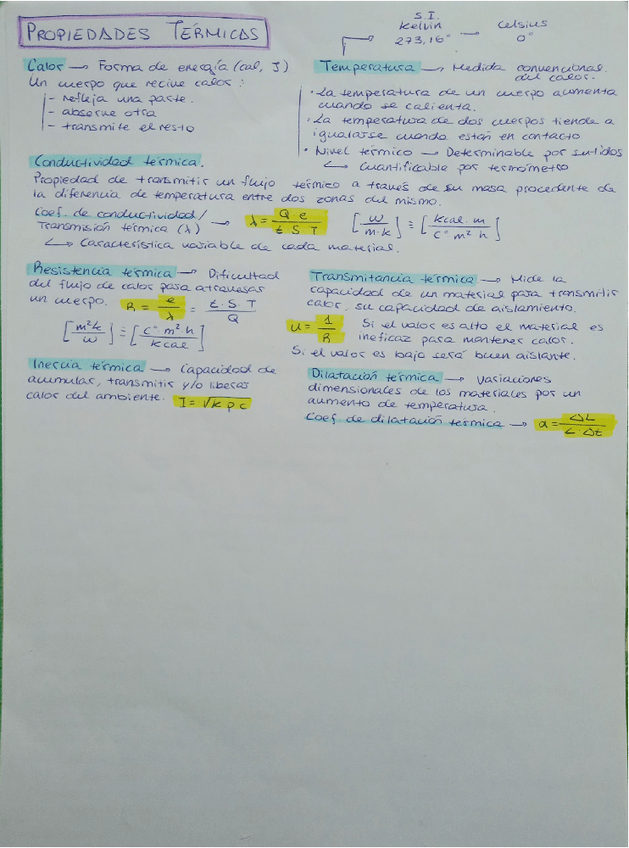 PROPIEDADES TÉRMICAS
S.I.
Kelvin → Celsius
273,16° 0°
Calor → Forma de energía (cal, J)
Un cuerpo que recive calor:
- refleja una parte.
- absorve otra
- transmite el resto
Temperatura → Medida convencional
del calor.
· La temperatura de un cuerpo aumenta
cuando se calienta.
· La temperatura de dos cuerpos tiende a
igualarse cuando están en contacto
· Nivel térmico → Determinable por sentidos
↳ Cuantificable por termómetro
Conductividad térmica.
Propiedad de transmitir un flujo térmico a través de su masa procedente de
la diferencia de temperatura entre dos zonas del mismo.
Coef. de conductividad/
Transmisión térmica (λ) → λ = Q e / t S T [W / m·k] ≡ [Kcal·m / C° m² h]
↳ Característica variable de cada material.
Resistencia térmica → Dificultad
del flujo de calor para atravesar
un cuerpo. R = e / λ = t·S·T / Q
[m²k / W] ≡ [C° m² h / Kcal]
Transmitancia térmica → Mide la
capacidad de un material para transmitir
calor, su capacidad de aislamiento.
U = 1 / R Si el valor es alto el material es
ineficaz para mantener calor.
Si el valor es bajo será buen aislante.
Inercia térmica → Capacidad de
acumular, transmitir y/o liberar
calor del ambiente. I = √k ρ c
Dilatación térmica → Variaciones
dimensionales de los materiales por un
aumento de temperatura.
Coef. de dilatación térmica → α = ΔL / L Δt